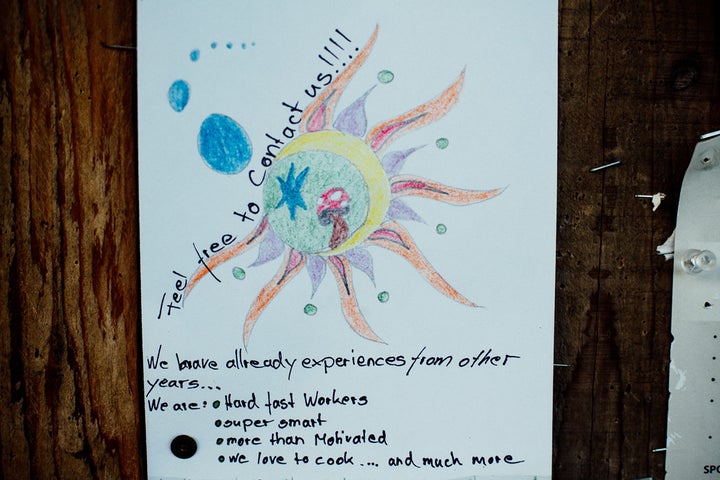 Feel free to Contact us!!!!
We brave allready experiences from other
years...
We are: • Hard fast Workers
• super smart
• more than Motivaled
• we love to cook .... and much more
SPO